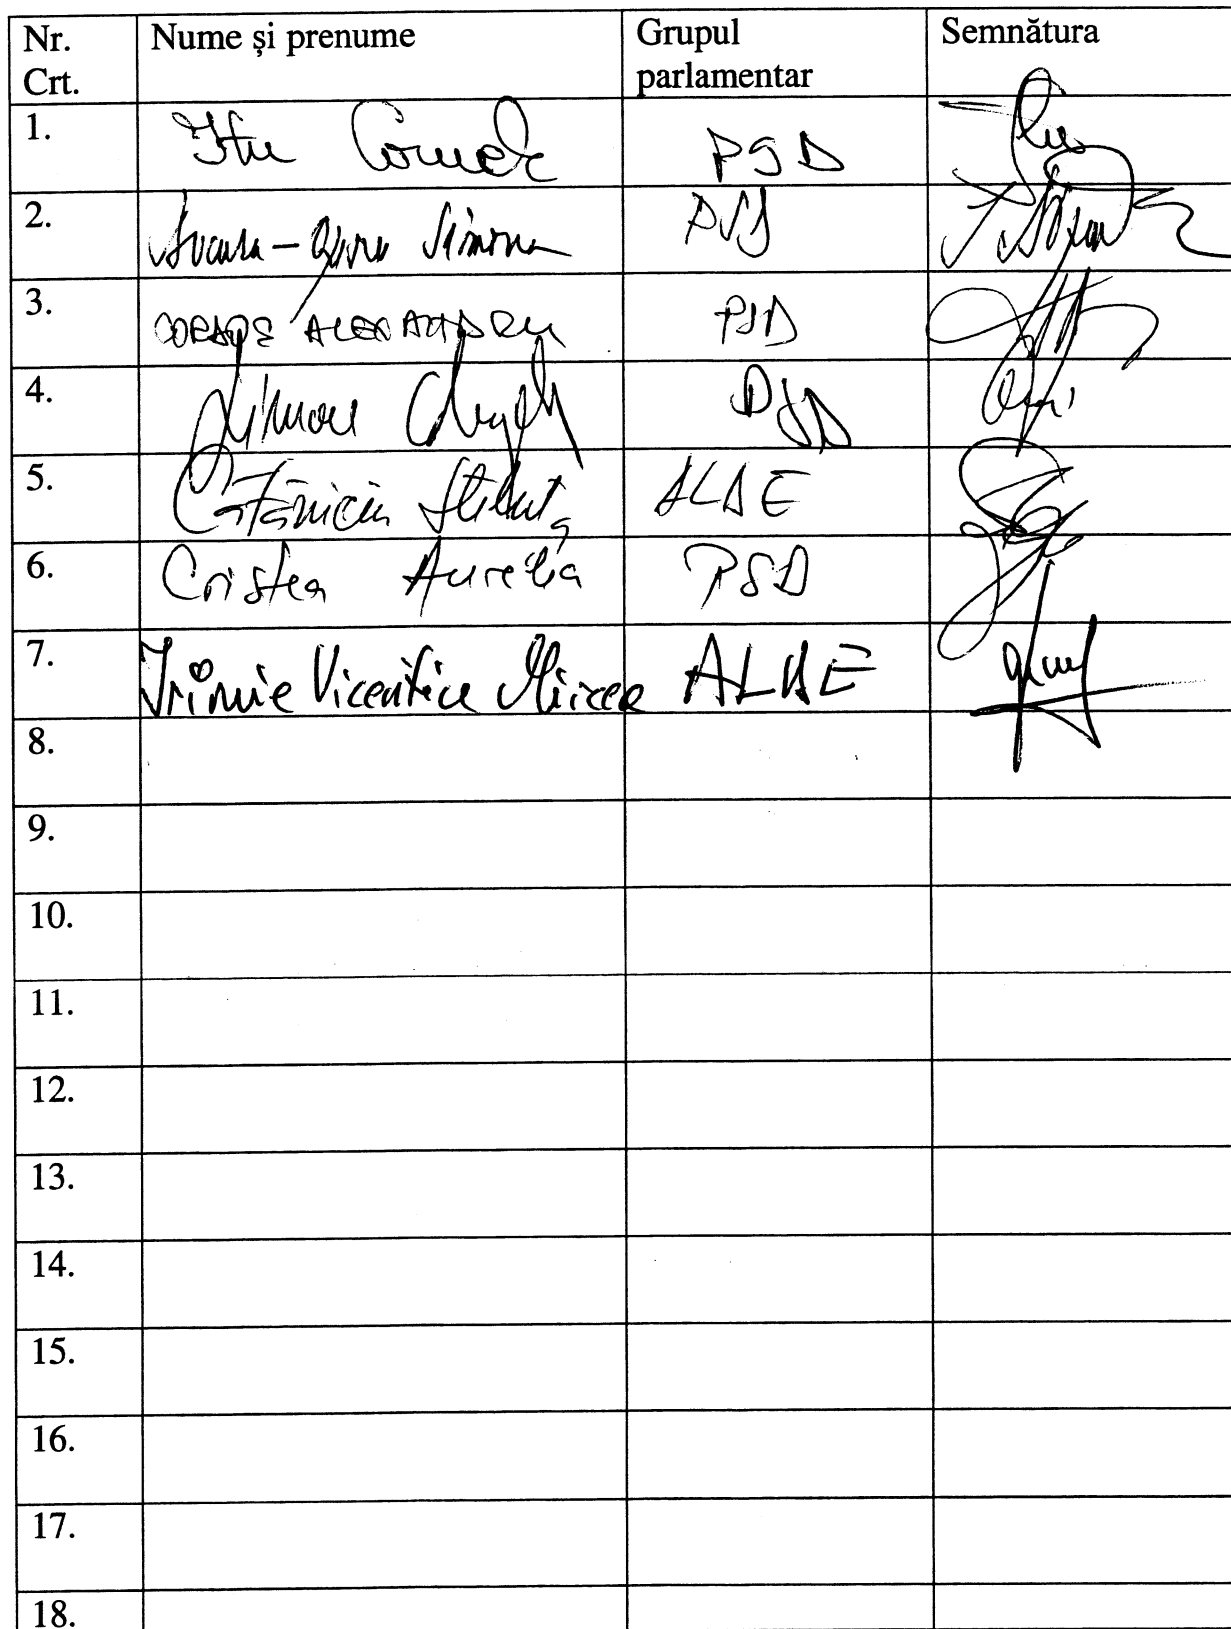 Nr. Crt. Nume și prenume Grupul parlamentar Semnătura
1. Itu Cornel PSD
2. Simona PSD
3. ALEXANDRU PSD
4. PSD
5. Cătăniciu Steluța ALDE
6. Cristea Aurelia PSD
7. Irimie Vicentiu Mircea ALDE
8.
9.
10.
11.
12.
13.
14.
15.
16.
17.
18.